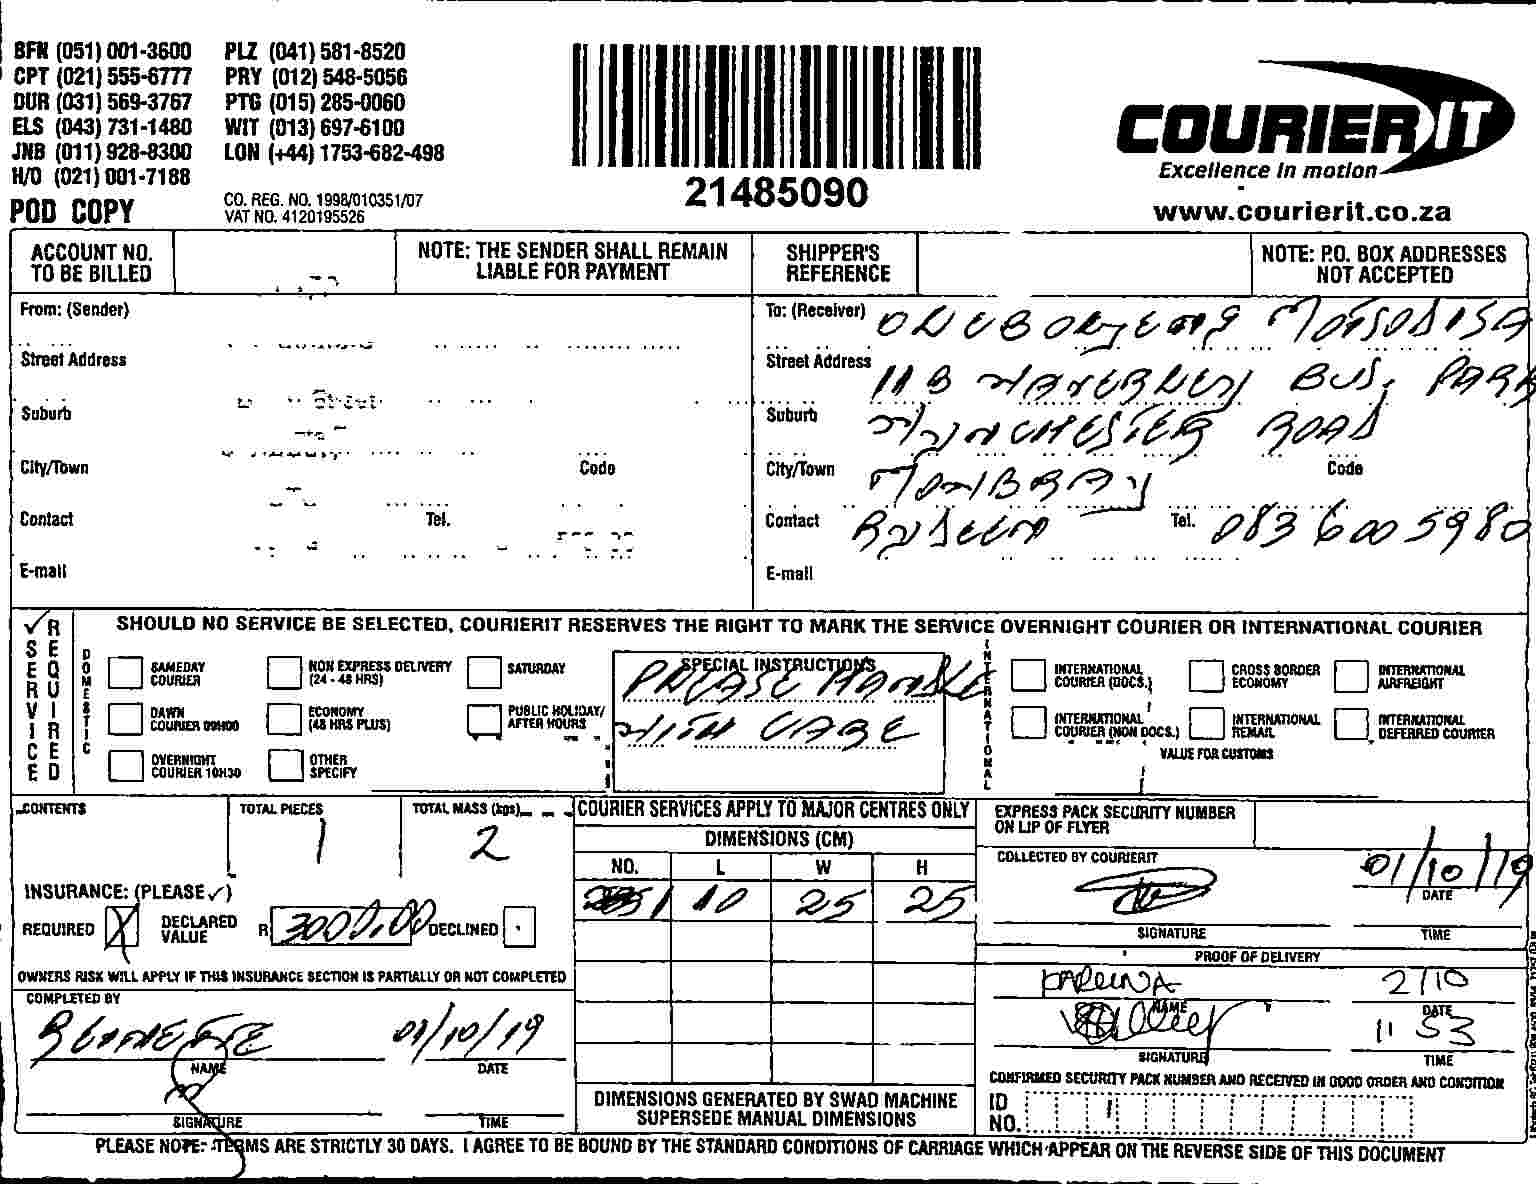 BFN (051) 001-3600 PLZ (041) 581-8520
CPT (021) 555-6777 PRY (012) 548-5056
DUR (031) 569-3767 PTG (015) 285-0060
ELS (043) 731-1480 WIT (013) 697-6100
JNB (011) 928-8300 LON (+44) 1753-682-498
H/O (021) 001-7188
POD COPY
CO. REG. NO. 1998/010351/07
VAT NO. 4120195526
21485090
COURIER IT
Excellence in motion
www.courierit.co.za
ACCOUNT NO. TO BE BILLED
NOTE: THE SENDER SHALL REMAIN LIABLE FOR PAYMENT
SHIPPER'S REFERENCE
NOTE: P.O. BOX ADDRESSES NOT ACCEPTED
From: (Sender)
Street Address
Street
Suburb
City/Town Code
Contact Tel.
E-mail
To: (Receiver) MOTSODISA
Street Address 11B WAVERLEY BUS. PARK
Suburb ROAD
City/Town MOWBRAY Code
Contact Tel. 083 600 5980
E-mail
SERVICE REQUIRED
SHOULD NO SERVICE BE SELECTED, COURIERIT RESERVES THE RIGHT TO MARK THE SERVICE OVERNIGHT COURIER OR INTERNATIONAL COURIER
DOMESTIC
SAMEDAY COURIER
NON EXPRESS DELIVERY (24 - 48 HRS)
SATURDAY
DAWN COURIER 09H00
ECONOMY (48 HRS PLUS)
PUBLIC HOLIDAY/ AFTER HOURS
OVERNIGHT COURIER 10H30
OTHER SPECIFY
SPECIAL INSTRUCTIONS
PLEASE HANDLE
WITH CARE
INTERNATIONAL
INTERNATIONAL COURIER (DOCS.)
CROSS BORDER ECONOMY
INTERNATIONAL AIRFREIGHT
INTERNATIONAL COURIER (NON DOCS.)
INTERNATIONAL REMAIL
INTERNATIONAL DEFERRED COURIER
VALUE FOR CUSTOMS
CONTENTS
TOTAL PIECES
1
TOTAL MASS (kgs)
2
INSURANCE: (PLEASE ✓)
REQUIRED X DECLARED VALUE R 3000,00 DECLINED
OWNERS RISK WILL APPLY IF THIS INSURANCE SECTION IS PARTIALLY OR NOT COMPLETED
COMPLETED BY
01/10/19
NAME DATE
SIGNATURE TIME
COURIER SERVICES APPLY TO MAJOR CENTRES ONLY
DIMENSIONS (CM)
NO. L W H
1 10 25 25
DIMENSIONS GENERATED BY SWAD MACHINE SUPERSEDE MANUAL DIMENSIONS
EXPRESS PACK SECURITY NUMBER ON LIP OF FLYER
COLLECTED BY COURIERIT
01/10/19
DATE
SIGNATURE TIME
PROOF OF DELIVERY
2/10
NAME DATE
11 53
SIGNATURE TIME
CONFIRMED SECURITY PACK NUMBER AND RECEIVED IN GOOD ORDER AND CONDITION
ID NO.
PLEASE NOTE: TERMS ARE STRICTLY 30 DAYS. I AGREE TO BE BOUND BY THE STANDARD CONDITIONS OF CARRIAGE WHICH APPEAR ON THE REVERSE SIDE OF THIS DOCUMENT